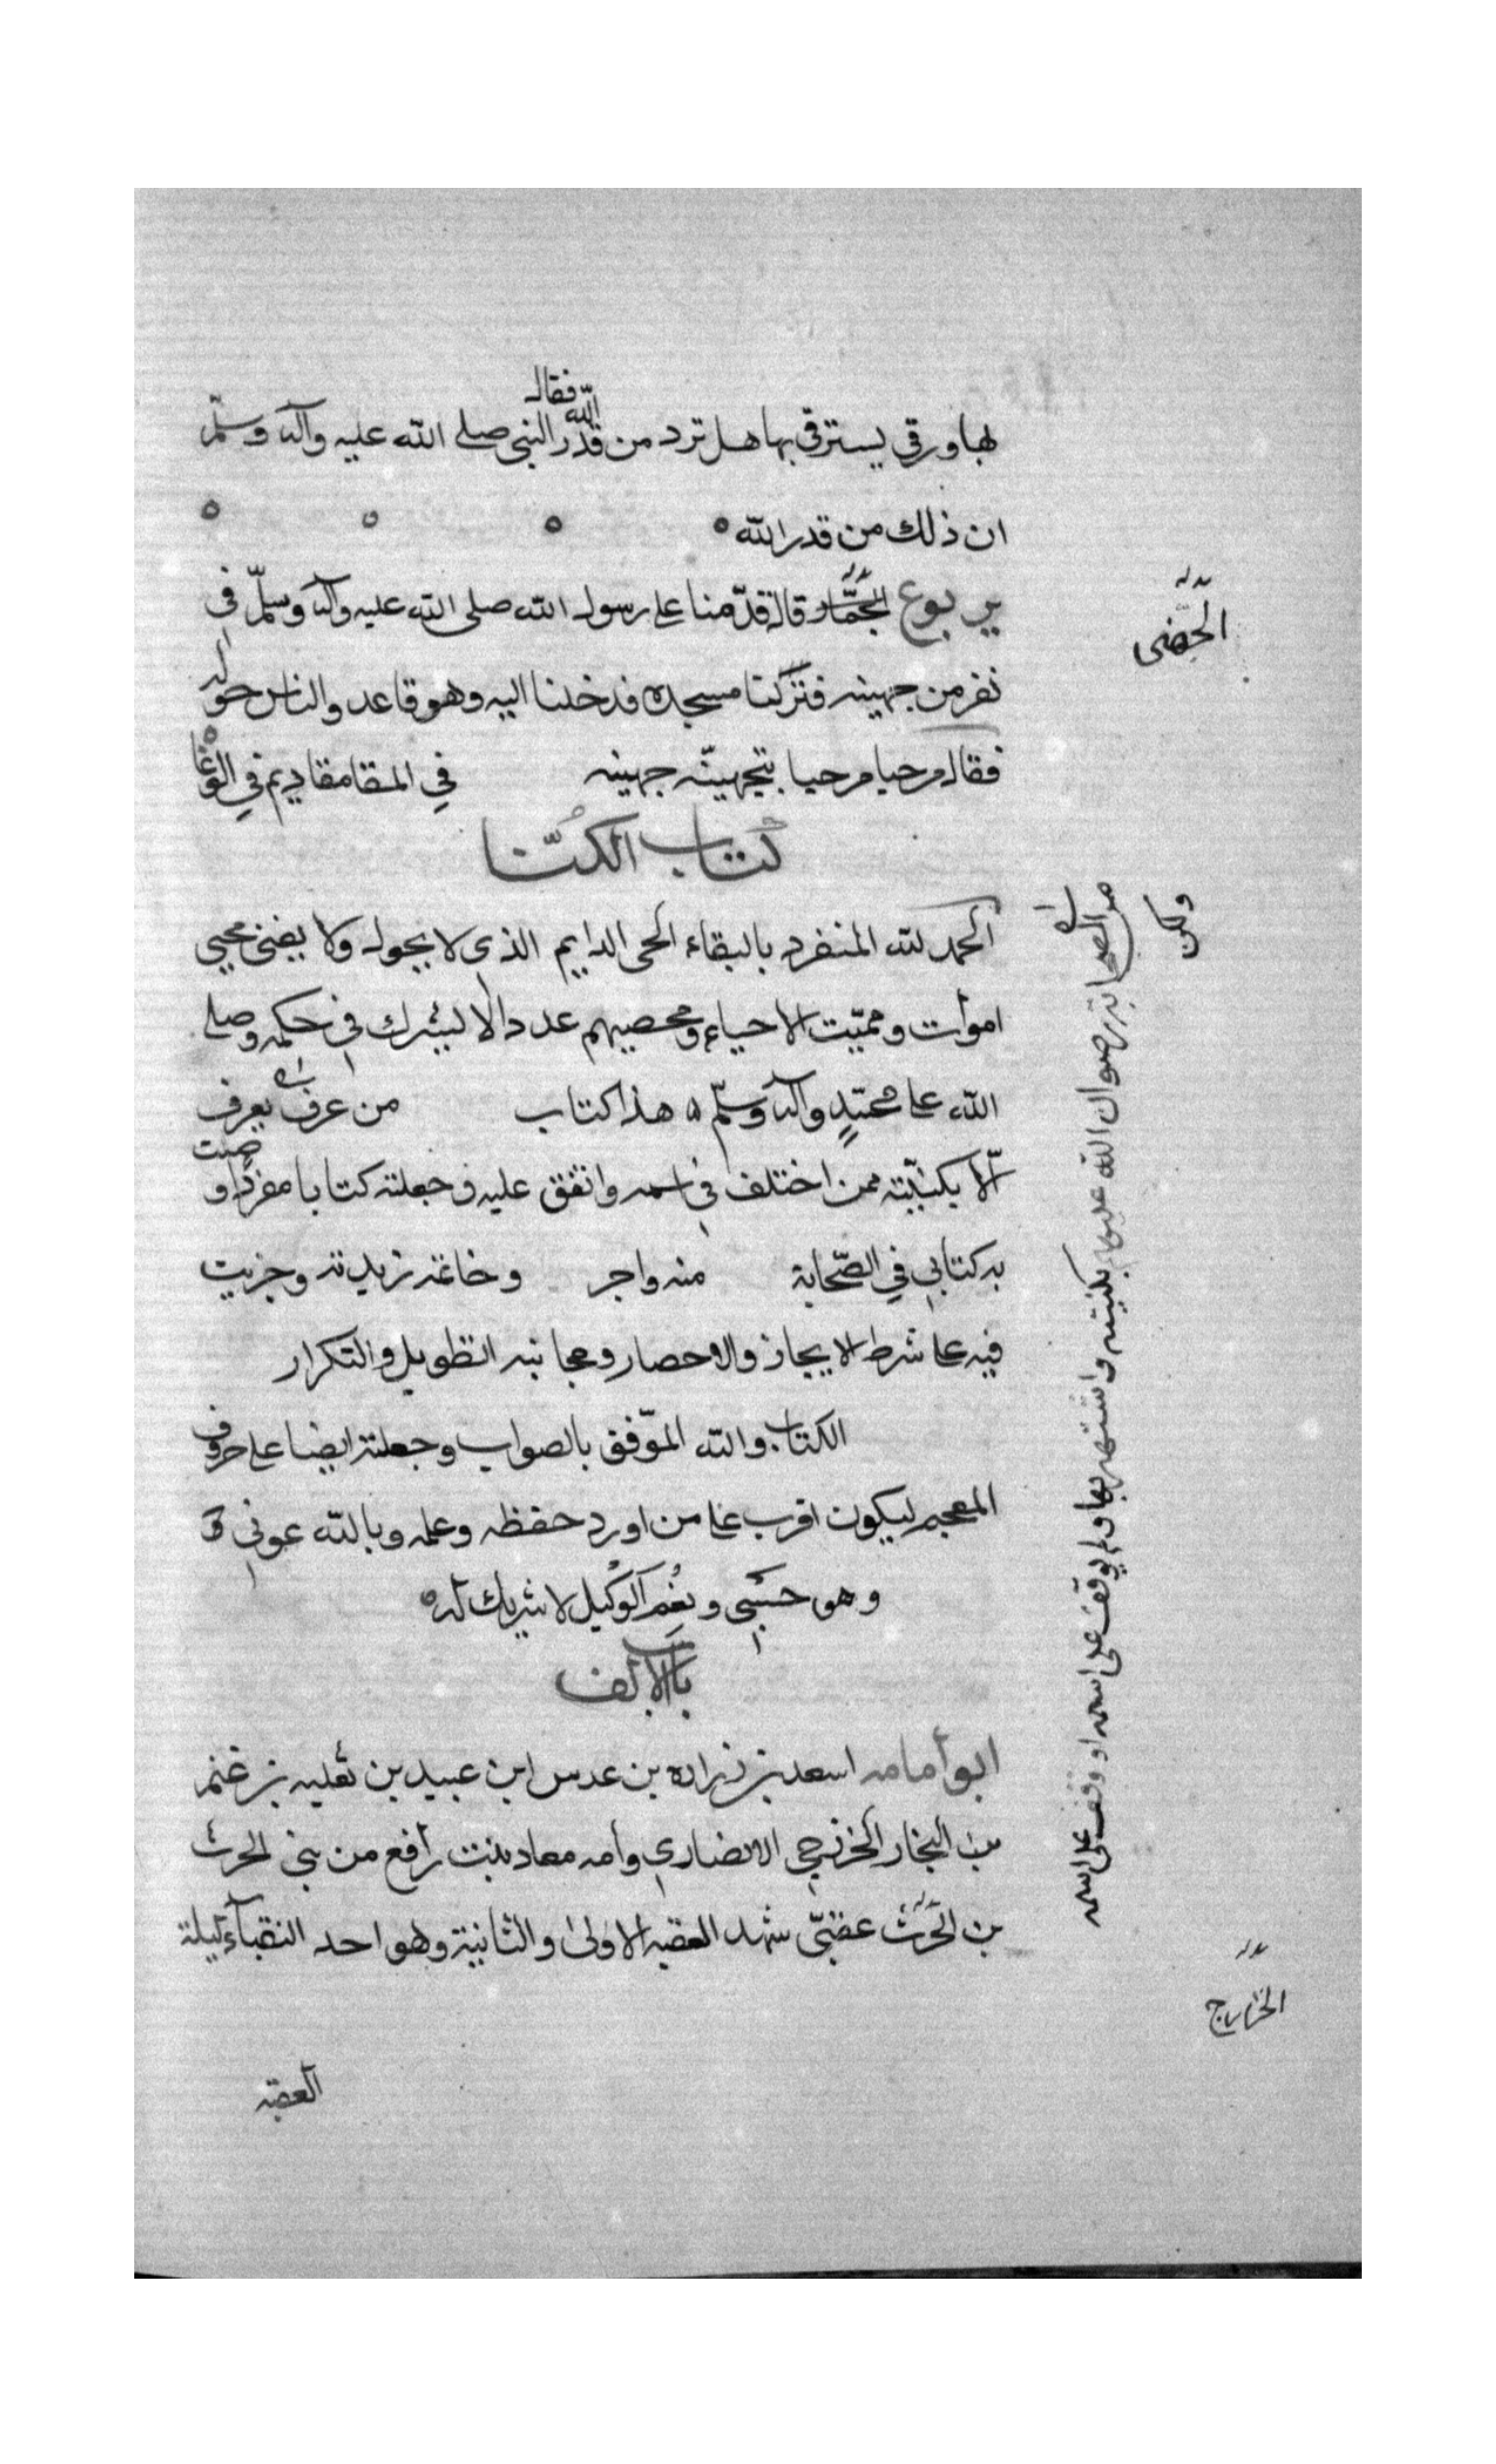 فقال
لها ورقي يسترقي بها هل ترد من قدر الله النبي صلى الله عليه وآله وسلم
ان ذلك من قدر الله
يربوع قال قدمنا على رسول الله صلى الله عليه وآله وسلم في
نفر من جهينه فتركنا مسجده فدخلنا اليه وهو قاعد والناس حوله
فقال مرحبا مرحبا بتجهينه جهينه في المقامقاديم في الوغا
كتاب الكنا
الحمد لله المنفرد بالبقاء الحي الدايم الذي لا يحول ولا يفنى محيي
اموات ومميت الاحياء ومحصيهم عددا لا ليشرك في حكمه وصلى
الله على محمد وآله وسلم هذا كتاب من عرف يعرف
الا بكنيته ممن اختلف في اسمه واتفق عليه وجعلته كتابا مفردا و صنت
به كتابي في الصحابة منه واجر وخاتمه زيدته وجريت
فيه على شرط الايجاز والاحصار ومجانبه التطويل والتكرار
الكتاب والله الموفق بالصواب وجعلته ايضا على حروف
المعجم ليكون اقرب على من اورد حفظه وعلمه وبالله عوني
وهو حسبي ونعم الوكيل لا شريك له
باب الالف
ابو أمامه اسعد بن زراره بن عدس ابن عبيد بن ثعلبه بن غنم
بن النجار الخزرجي الانصاري وأمه معاد بنت رافع من بني الحرث
بن الحرث عقبي شهد العقبه الاولى والثانية وهو احد النقباء ليلة
العقبه
ولكن
من الصحابة رضوان الله عليهم بكنيته واشتهر بها ولم يوقف على اسمه او وقف على اسمه
الخزرج